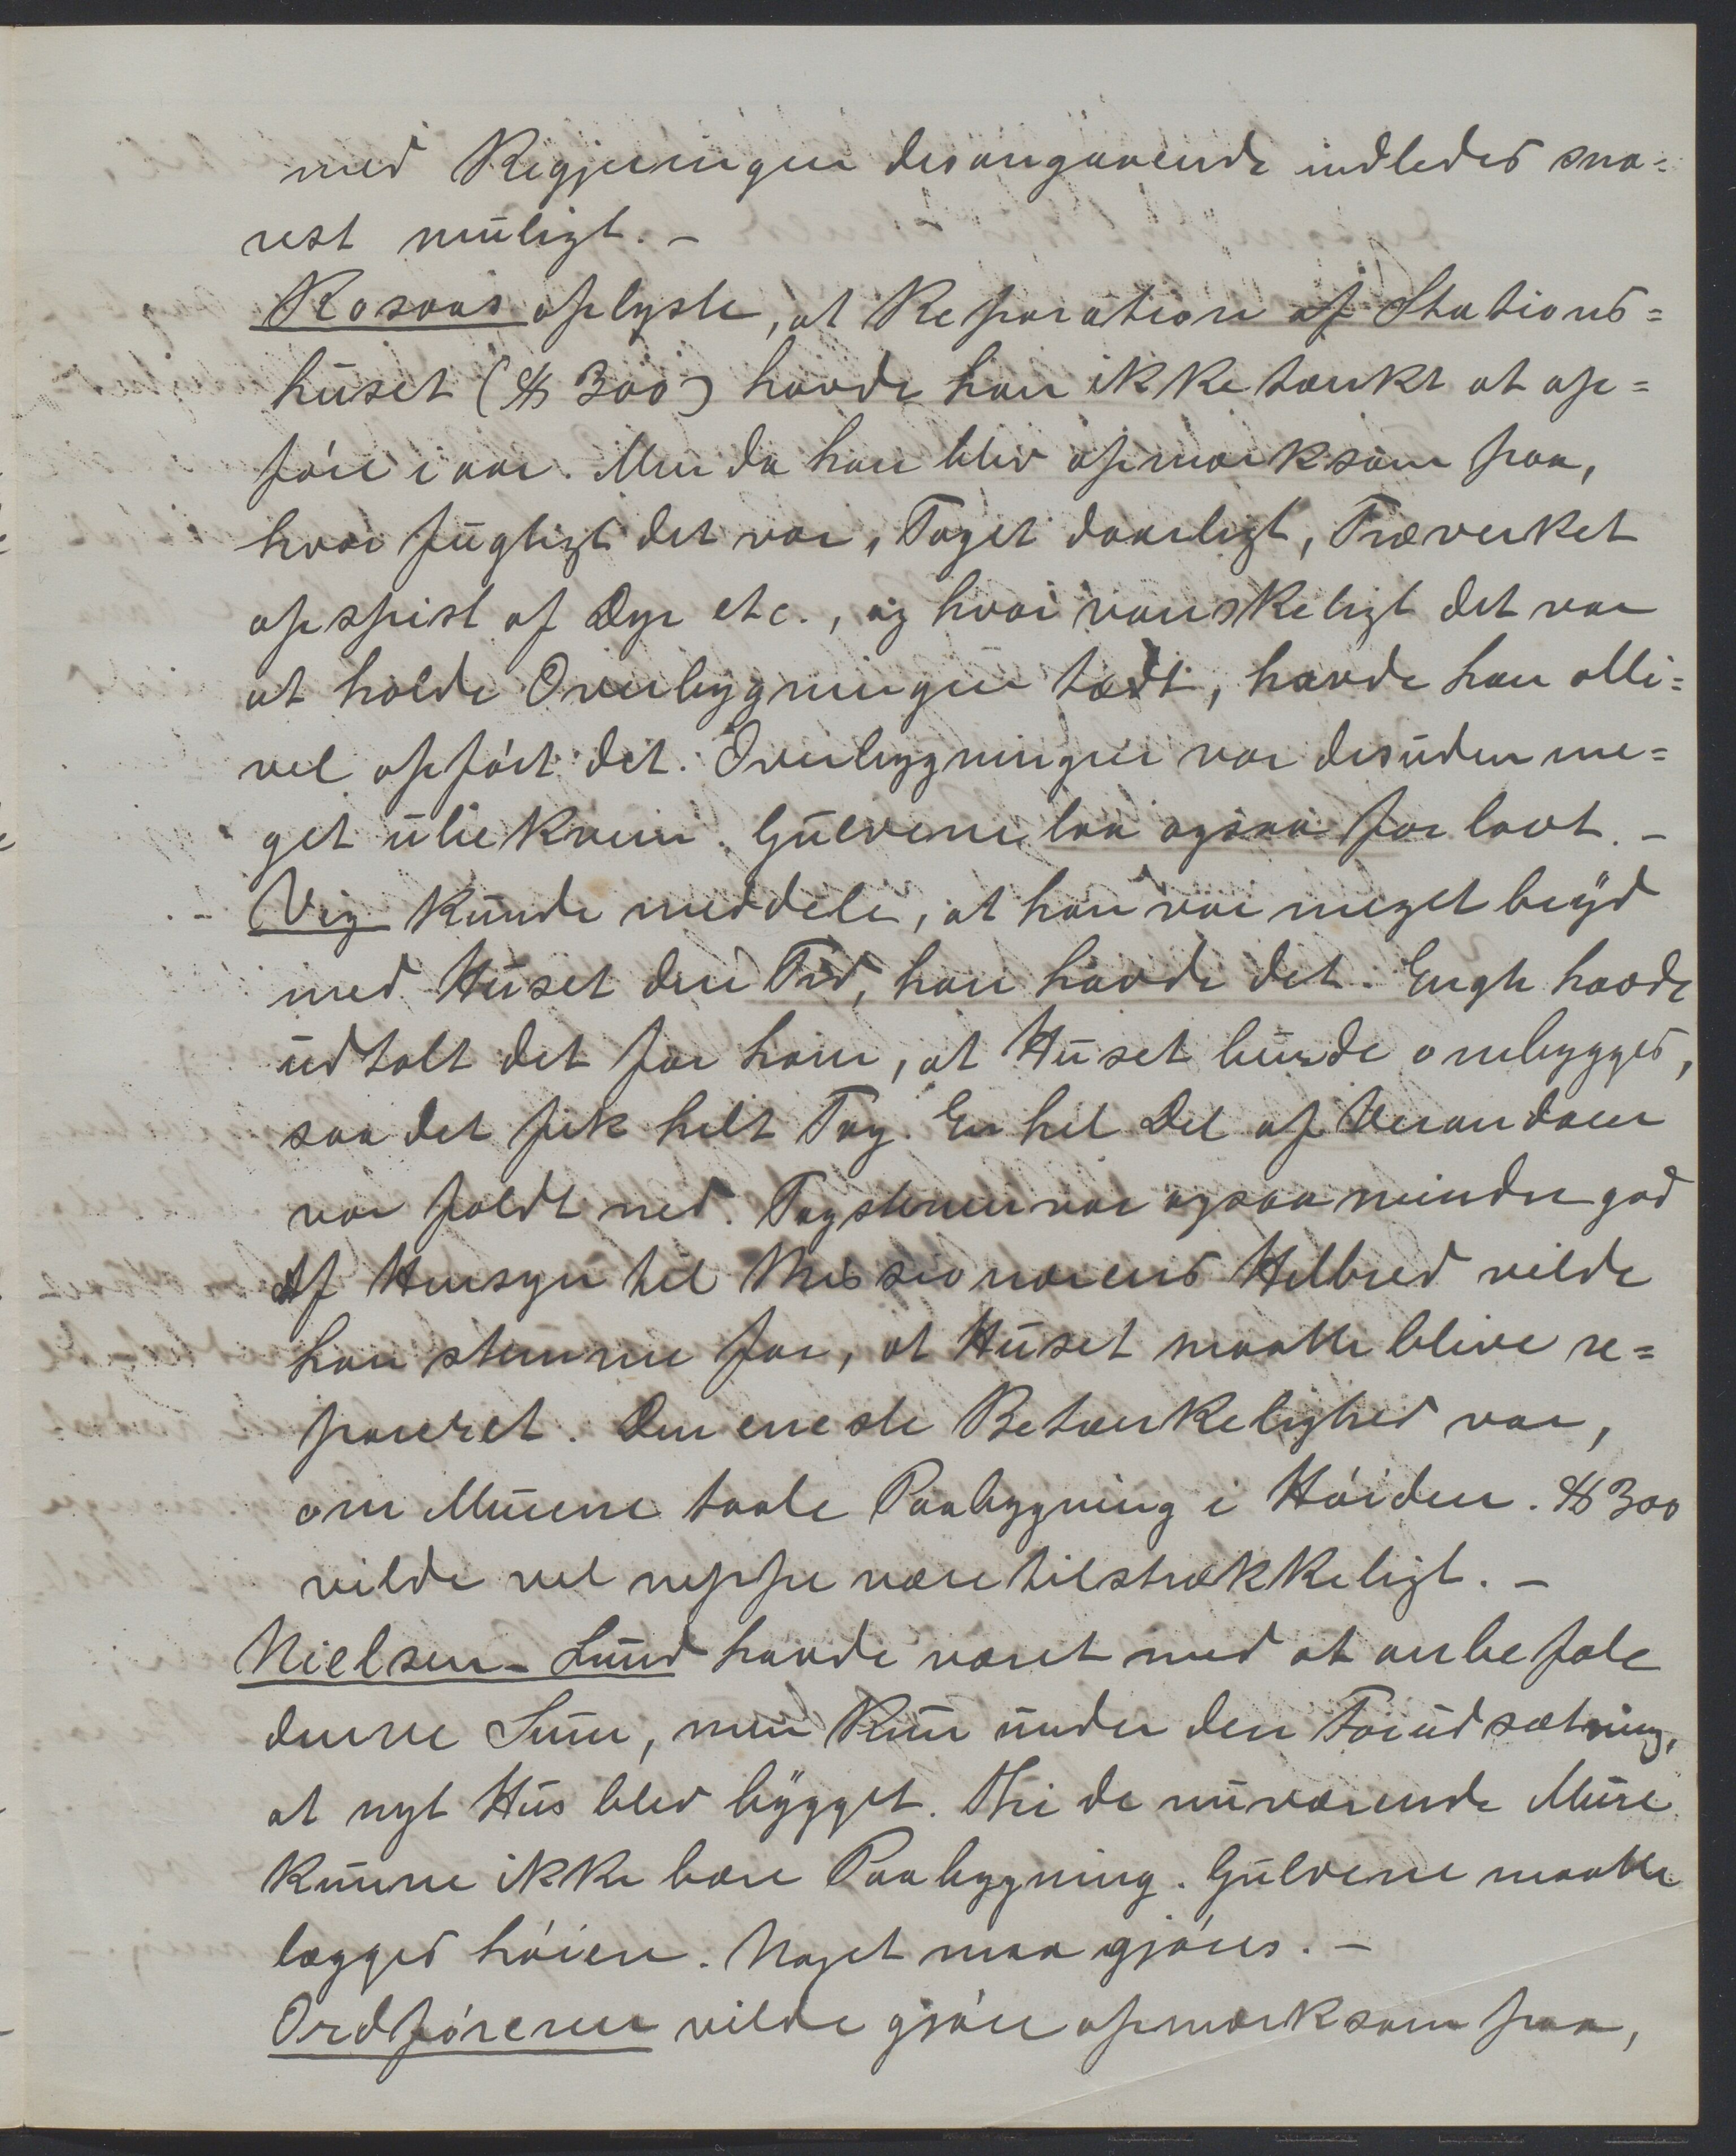 med Regjeringen desangaaende indledes sna=
rest muligt. –
Rosaas oplyste, at Reparation af Stations=
huset ($ 300) havde han ikke tænkt at op=
føre i aar. Men da han blev opmærksom paa,
hvor fugtigt det var, Taget daarligt, Træverket
opspist af Dyr etc., og hvor vanskeligt det var
at holde Overbygningen tæt, havde han alli=
vel opført det. Overbygningen var desuden me=
get ubekvem. Gulvene laa ogsaa for lavt. –
Vig kunde meddele, at han var meget bryd
med Huset den Tid, han havde det. Engh havde
udtalt det for ham, at Huset burde ombygges,
saa det fik helt Tag. En hel Del af Verandaen
var faldt ned. Tagstenen var ogsaa mindre god
Af Hensyn til Missionærens Helbred vilde
han stemme for, at Huset maatte blive re=
pareret. Den eneste Betænkelighed var,
om Murene taale Paabygning i Høiden. $ 300
vilde vel neppe være tilstrækkeligt. –
Nielsen-Lund havde været med at anbefale
denne Sum, men kun under den Forudsætning,
at nyt Hus blev bygget. Thi de nuværende Mure
kunne ikke bære Paabygning. Gulvene maatte
lægges høiere. Noget maa gjøres. –
Ordføreren vilde gjøre opmærksom paa,